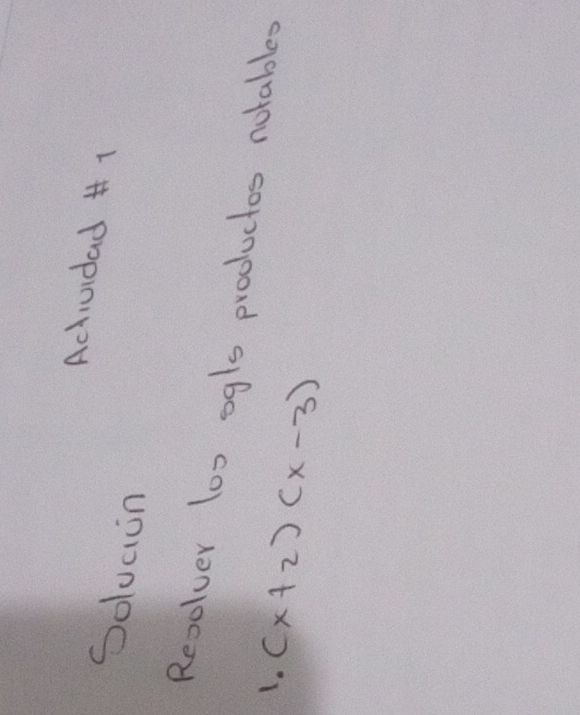 Actividad # 1
Solución
Resolver los sgls productos notables
1. (x+2) (x-3)